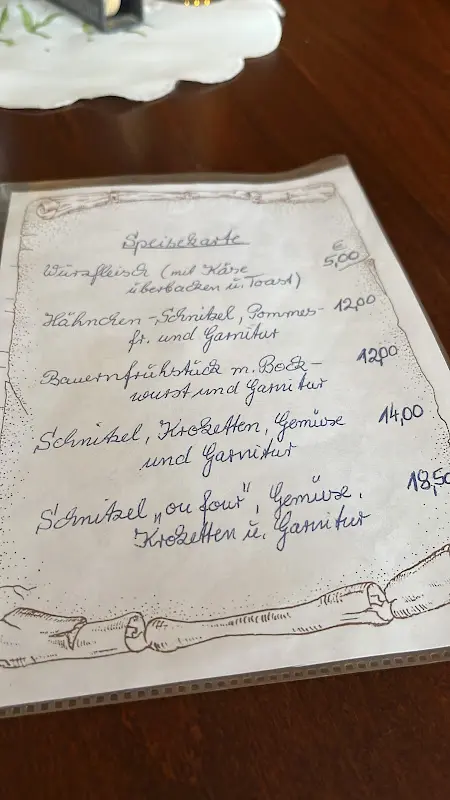 Speisekarte
€
Würzfleisch (mit Käse 5,00
überbacken u. Toast)
Hähnchen-Schnitzel, Pommes- 12,00
fr. und Garnitur
Bauernfrühstück m. Bock- 12,00
wurst und Garnitur
Schnitzel, Kroketten, Gemüse 14,00
und Garnitur
Schnitzel „ou four", Gemüse, 18,50
Kroketten u. Garnitur